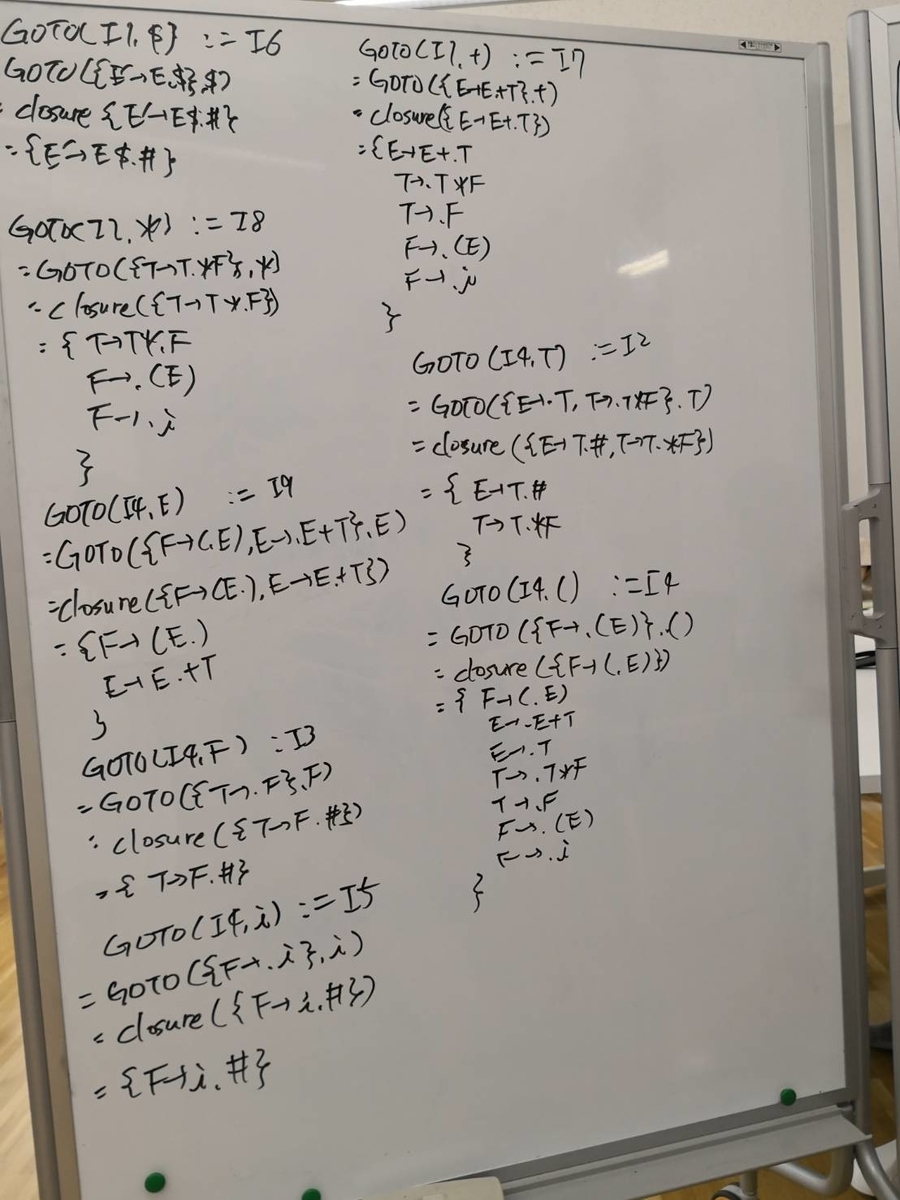 GOTO(I1,$) := I6
GOTO({E'→E.$},$)
= closure {E'→E$.#}
= {E'→E$.#}
GOTO(I2,*) := I8
= GOTO({T→T.*F},*)
= closure({T→T*.F})
= { T→T*.F
F→.(E)
F→.i
}
GOTO(I4,E) := I9
= GOTO({F→(.E),E→.E+T},E)
= closure({F→(E.),E→E.+T})
= {F→(E.)
E→E.+T
}
GOTO(I4,F) := I3
= GOTO({T→.F},F)
= closure({T→F.#})
= { T→F.#}
GOTO(I4,i) := I5
= GOTO({F→.i},i)
= closure({F→i.#})
= {F→i.#}
GOTO(I1,+) := I7
= GOTO({E→E.+T},+)
= closure({E→E+.T})
= {E→E+.T
T→.T*F
T→.F
F→.(E)
F→.i
}
GOTO(I4,T) := I2
= GOTO({E→.T, T→.T*F},T)
= closure({E→T.#,T→T.*F})
= { E→T.#
T→T.*F
}
GOTO(I4,() := I4
= GOTO({F→.(E)},()
= closure({F→(.E)})
= { F→(.E)
E→.E+T
E→.T
T→.T*F
T→.F
F→.(E)
F→.i
}